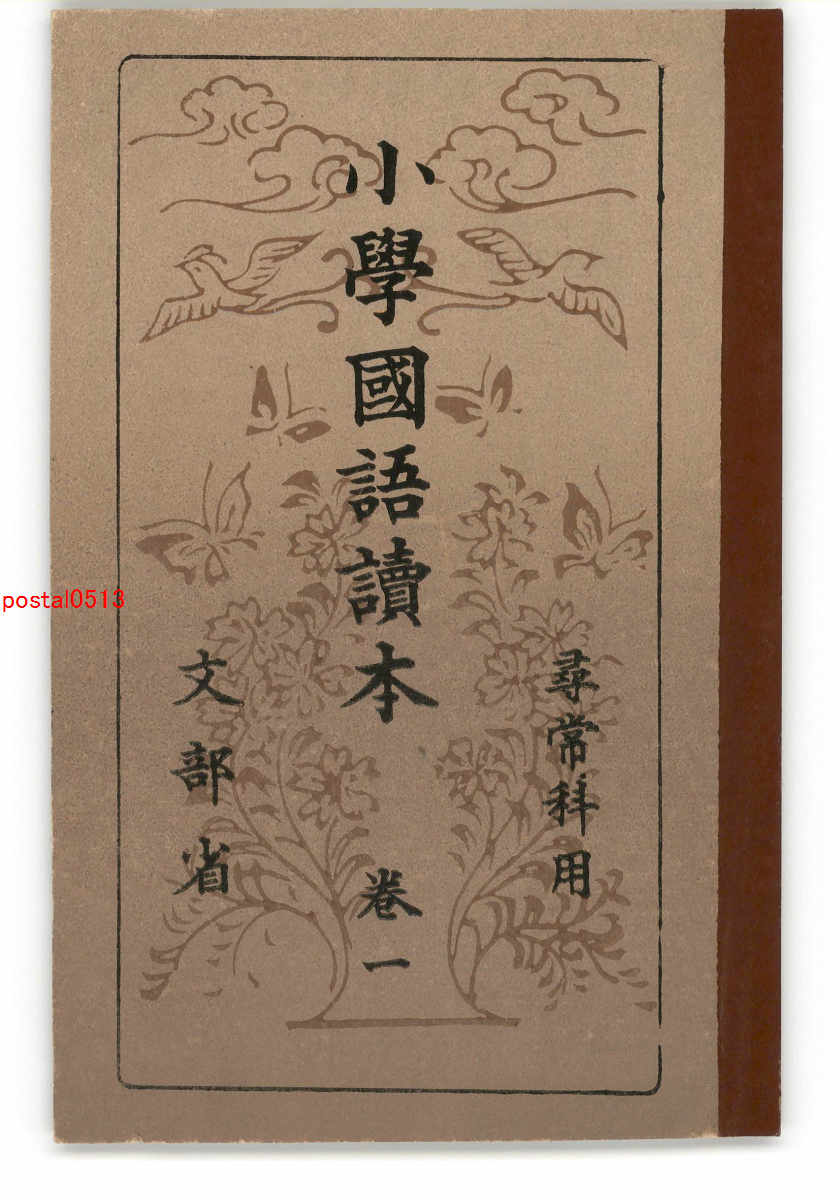 尋常科用
小學國語讀本 卷一
文部省
postal0513